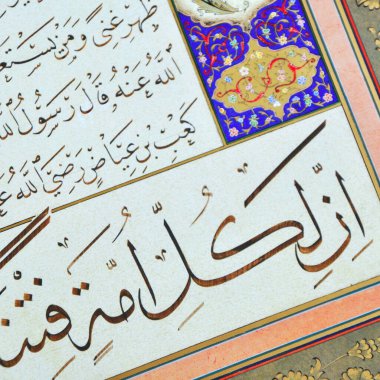 ظَهْرِ غِنًى وَمَنْ
اللَّهُ عَنْهُ قَالَ رَسُولُ اللَّهِ
كَعْبِ بْنِ عِيَاضٍ رَضِيَ اللَّهُ
اِنَّ لِكُلِّ اُمَّةٍ